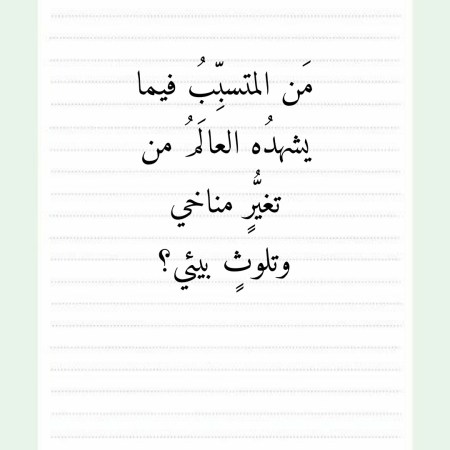 مَن المتسبِّبُ فيما
يشهدُه العالَمُ من
تغيُّرٍ مناخي
وتلوثٍ بيئي؟